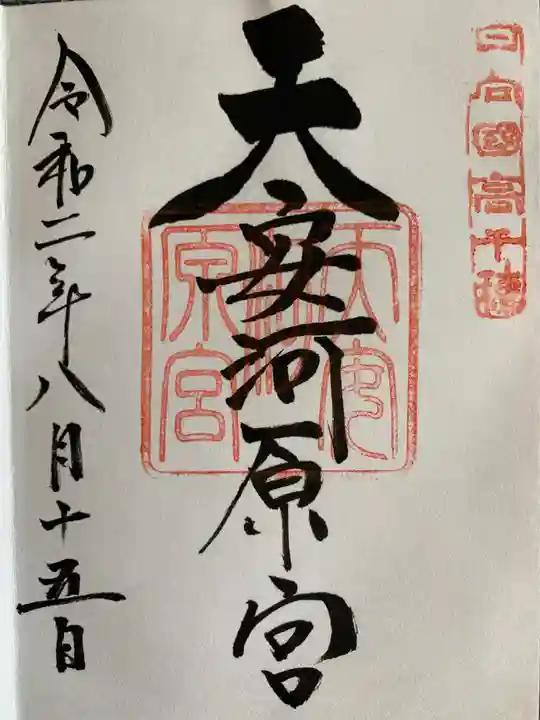 日向國高千穂
天安河原宮
天安河原宮
令和二年八月十五日